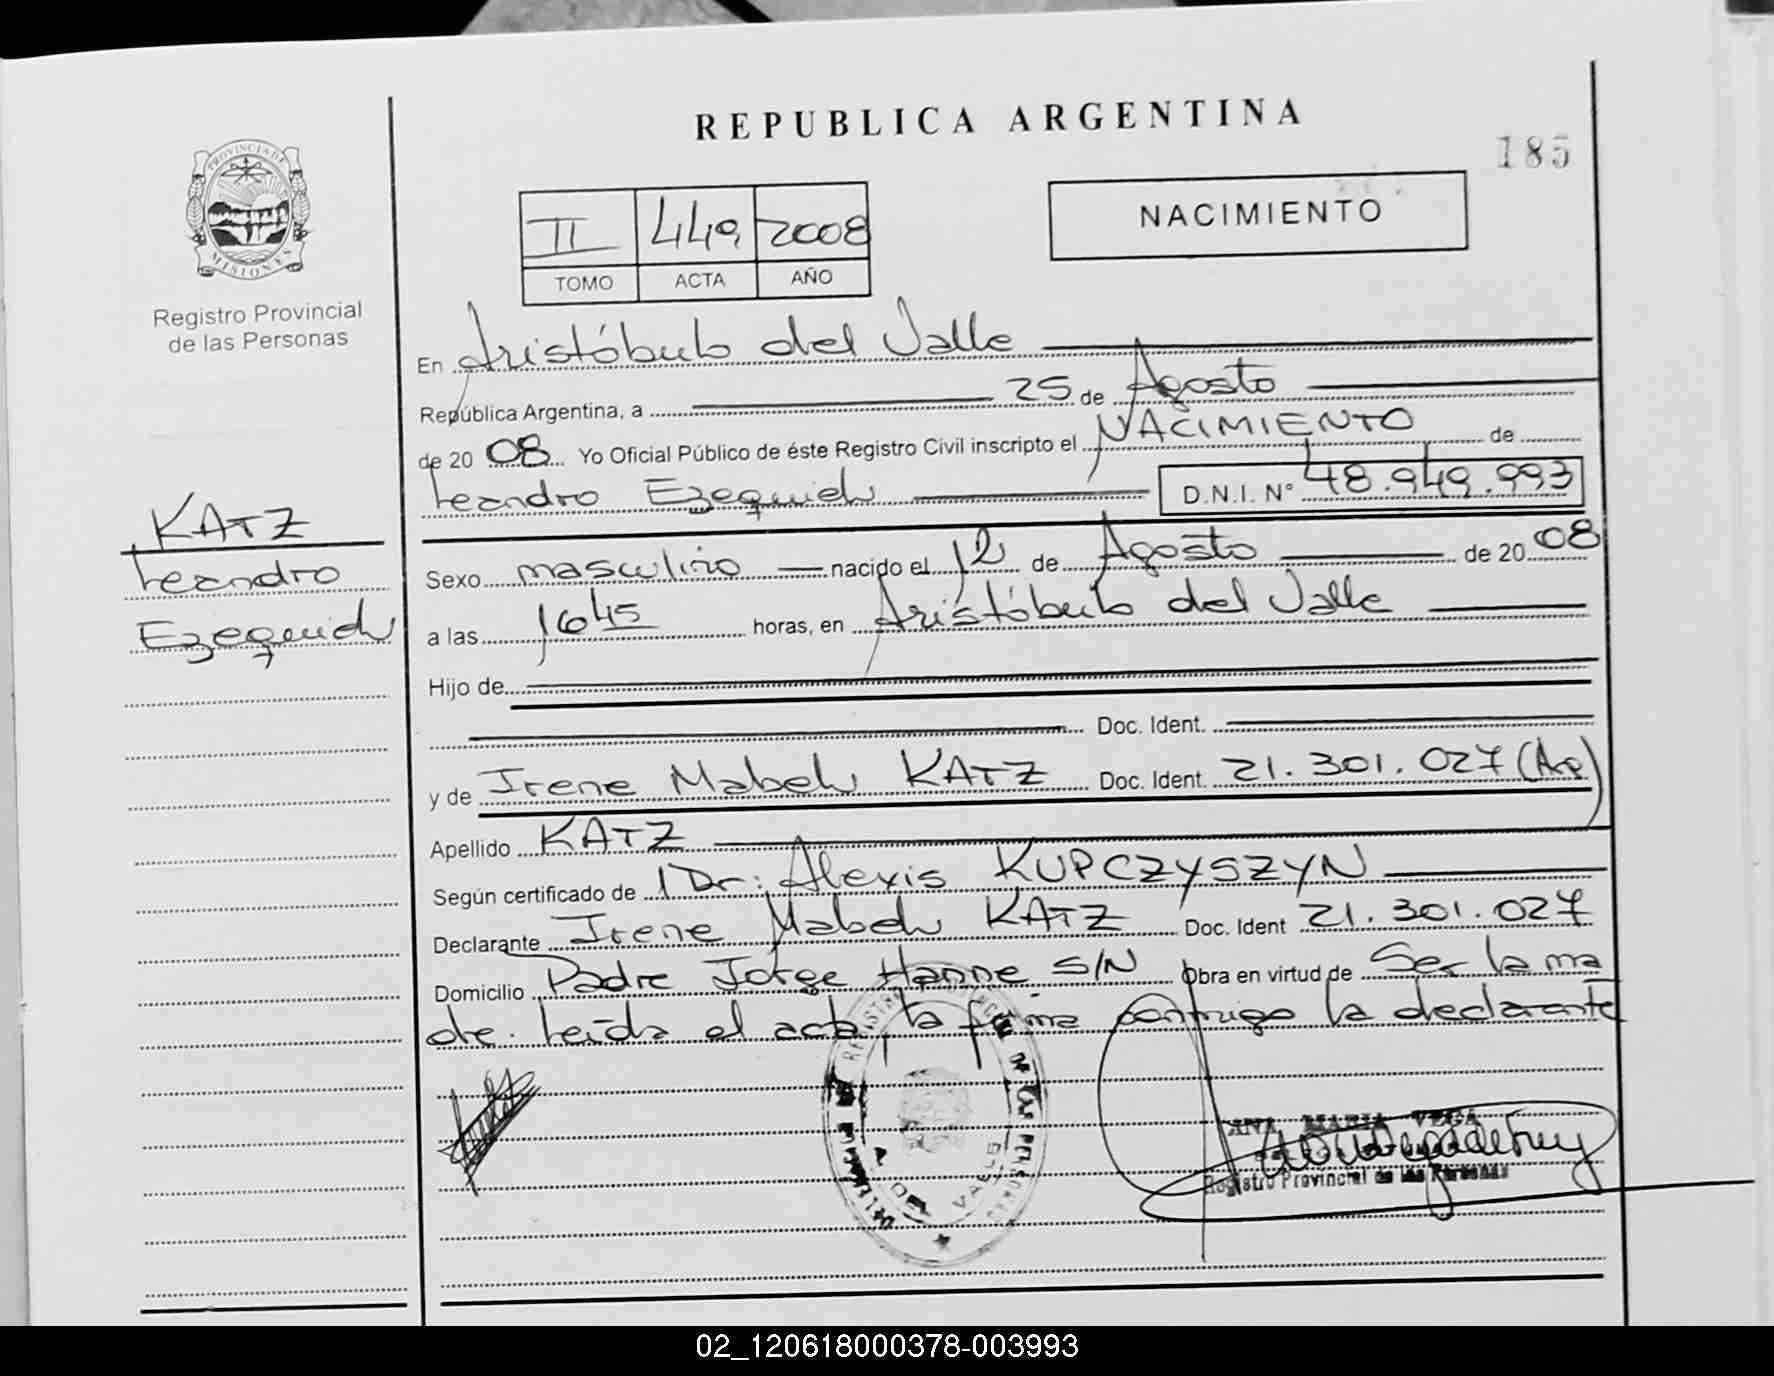 REPUBLICA ARGENTINA
185
PROVINCIA DE
MISIONES
Registro Provincial
de las Personas
II 449 2008
TOMO ACTA AÑO
NACIMIENTO
En Aristóbulo del Valle
República Argentina, a 25 de Agosto
de 20 08 Yo Oficial Público de éste Registro Civil inscripto el NACIMIENTO de
Leandro Ezequiel D.N.I. N° 48.949.993
KATZ
Leandro
Ezequiel
Sexo masculino nacido el 12 de Agosto de 20 08
a las 1645 horas, en Aristóbulo del Valle
Hijo de
Doc. Ident.
y de Irene Mabel KATZ Doc. Ident. 21.301.027 (Arg)
Apellido KATZ
Según certificado de Dr: Alexis KUPCZYSZYN
Declarante Irene Mabel KATZ Doc. Ident 21.301.027
Domicilio Padre Jorge S/N Obra en virtud de Ser la ma
dre. Leída el acta, la firma conmigo la declarante
ANA MARIA VEGA
Registro Provincial de las Personas
VALLE
02_120618000378-003993